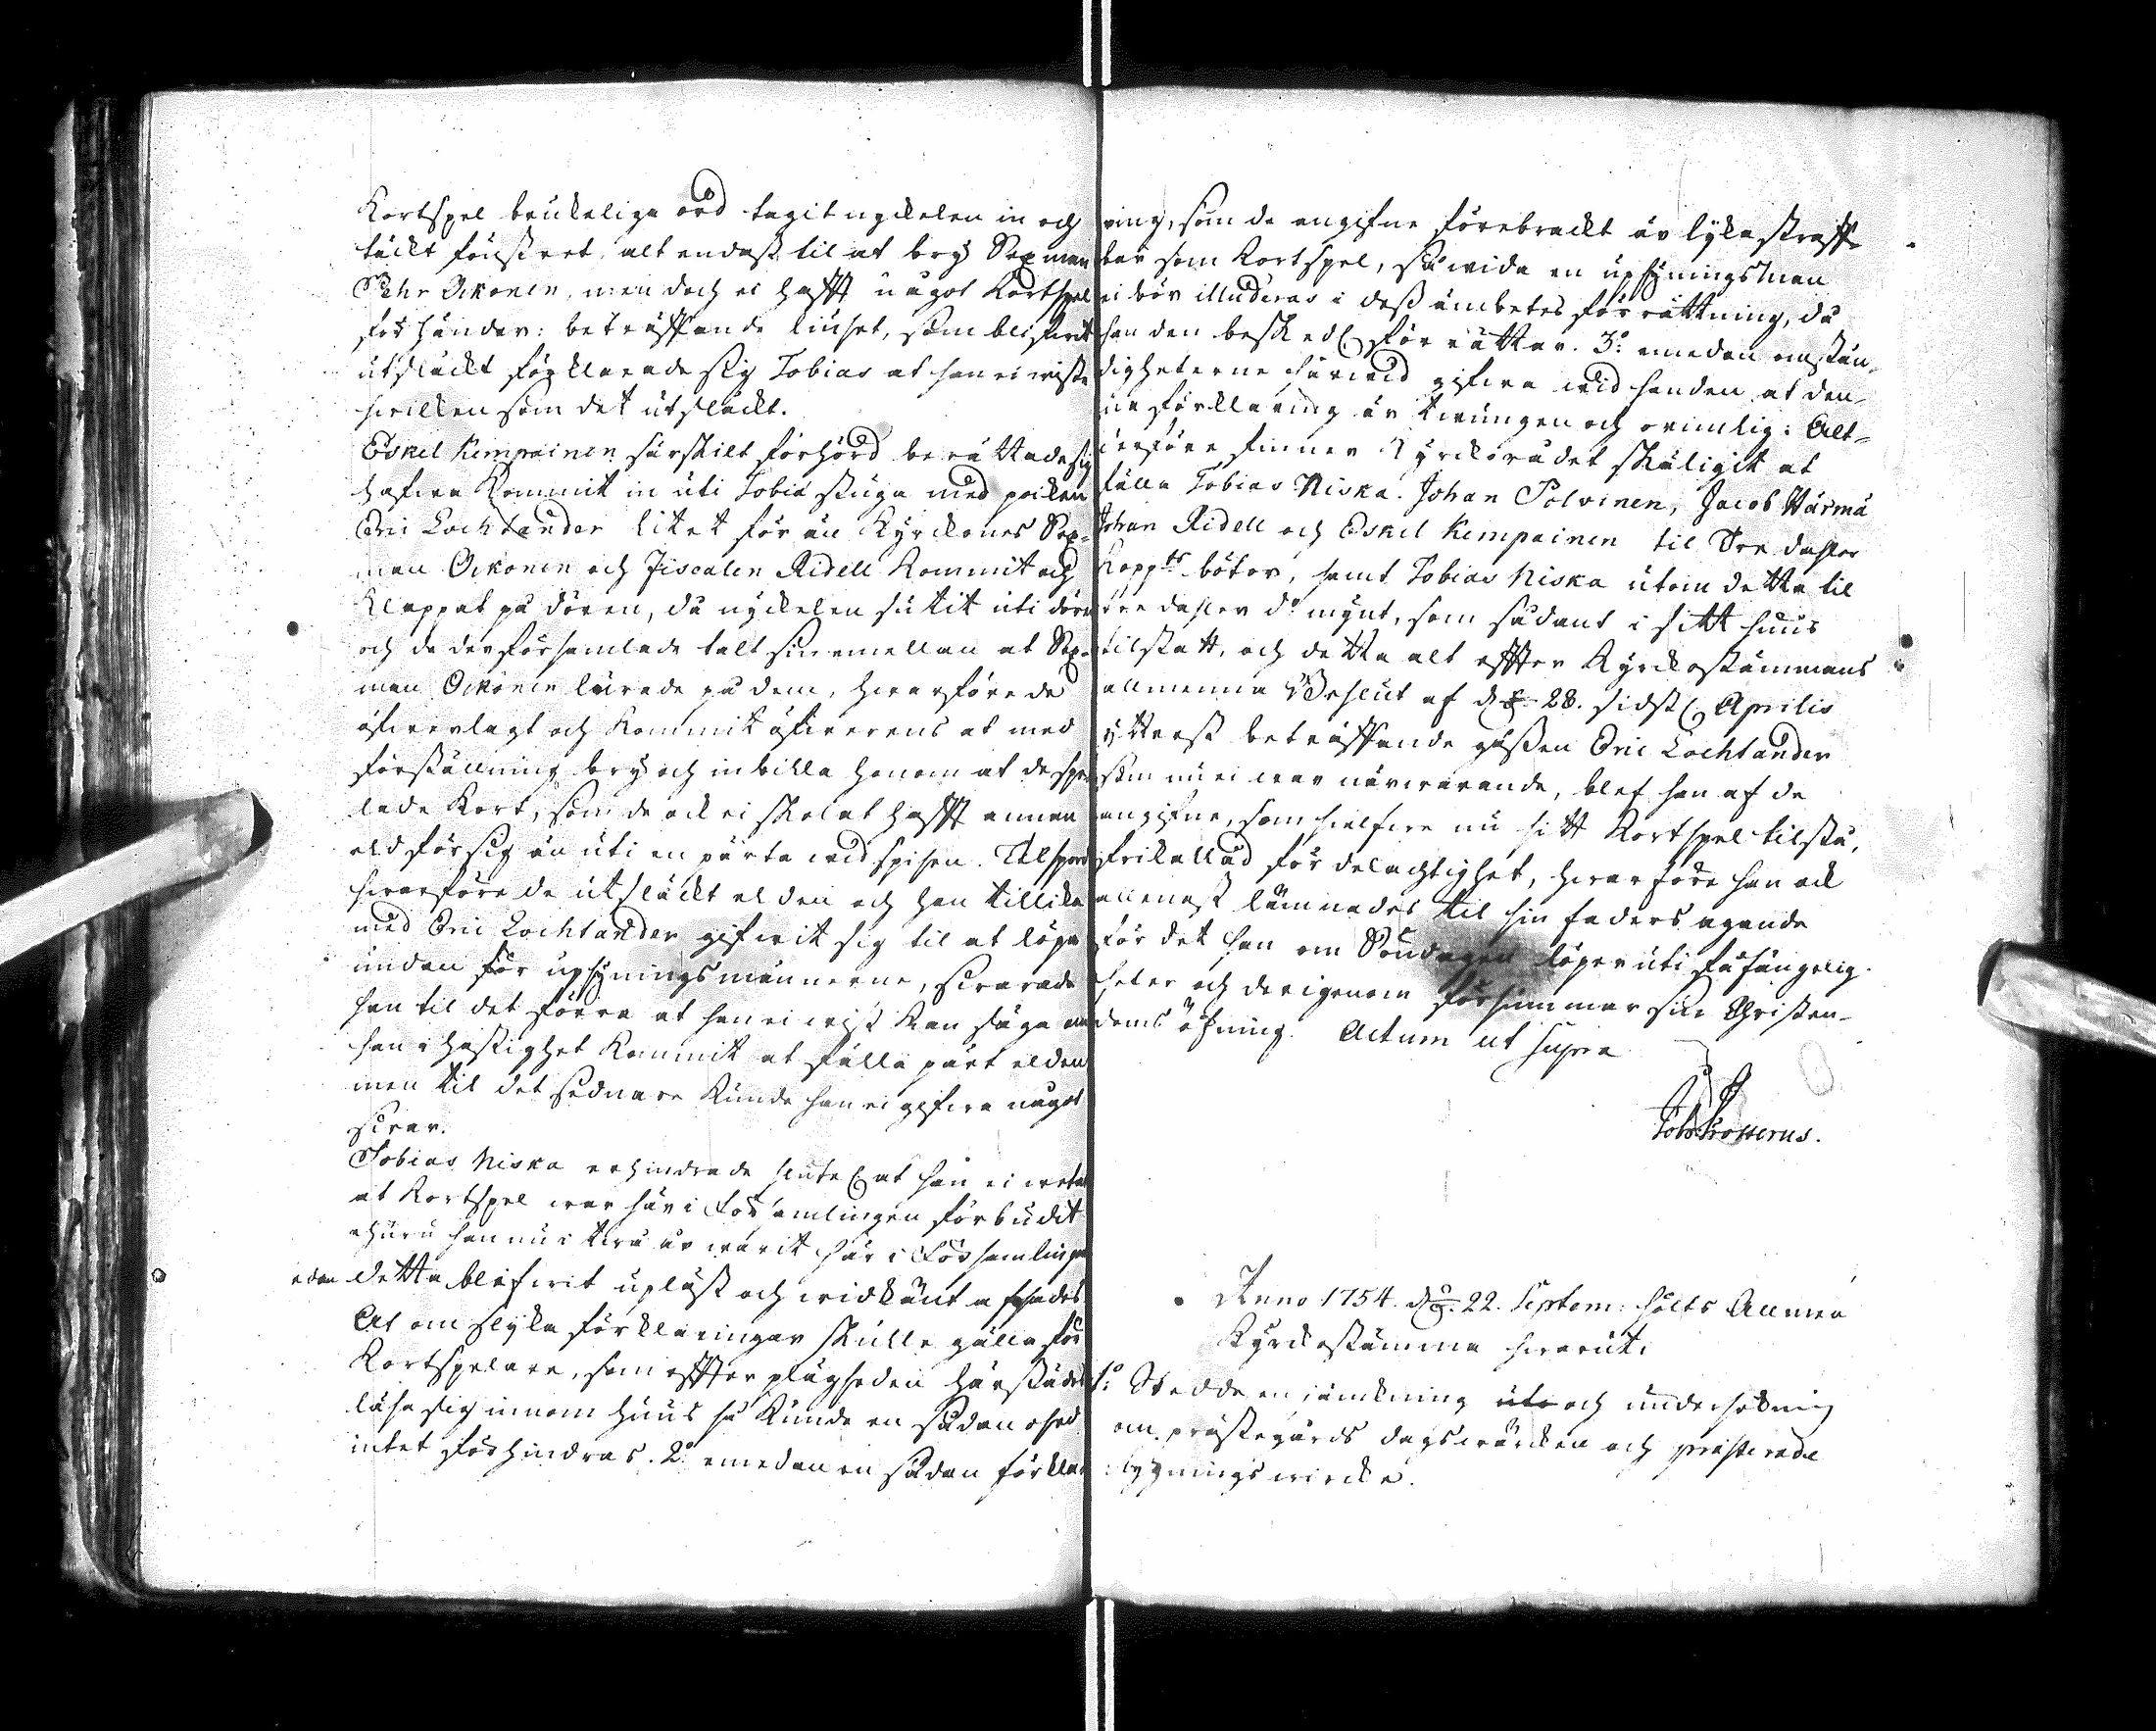 Kortspel brukelige ord tagit nyckelen in och
täckt fönstret, alt endast til at bry Sexman
Pehr Oikonen, men doch ei hafft något Kortspel
för händer: beträffande liuset, som blifvit
utsläckt förklarade sig Tobias at han ei wiste
hvilken som det utsläckt.
Eskel Kempainen särskilt förhörd berättade sig
hafva Kommit in uti Tobiæ stuga med poiken
Eric Lochlander litet för än Kyrckones Sex-
man Oikonen och Fiscalen Ridell Kommit och
Klappat på dören, då nyckelen sutit uti dören
och de der församlade talt sin emellan at Sex-
man Oikonen lurade på dem, hvarföre de
öfverlagt och Kommit öfverens at med
förställning bry och inbilla honom at de spe-
lade Kort, som de ock ei skolat hafft annan
eld för sig än uti en pärta wid spisen. Tilspord
hvarföre de utsläckt elden och han tillika
med Eric Lochlander gifwit sig til at löpa
undan för upsyningsmännerne, svarade
han til det förra at han ei wist kan säga om
han i hastighet Kommit at fälla pärt elden
men til det sednare Kunde han ei gifva något
svar.
Tobias Niska erhindrade slutel. at han ei wetat
at Kortspel war här i Församlingen förbudit
ehuru han nu i twå år warit här i Församlingen
edan detta blifwit upläst och widkänt afsades
At om slyka förklaringar skulle gälla för
Kortspelare, som effter plägseden härstädes
låsa sig innom huus så Kunde en sådan osed
intet förhindras. 2o emedan en sådan förkla-
ring, som de angifne förebrackt är lyka straff-
bar som Kortspel, så wida en upsyningsman
ei bör illuderas i dess ämbetes förrättning, då
han den beskedl. förrättar. 3o: emedan omstän-
digheterne härwid gifva wid handen at den-
na förklaring är twungen och orimlig: Alt-
derföre finner Kyrckorådet skäligit at
fälla Tobias Niska. Johan Polvinen, Jacob Wärmä
Johan Ridell och Eskel Kempainen til Tre daler
Koppts böter, samt Tobias Niska utom detta til
tre daler do mynt, som sådant i sitt huus
tilstatt, och detta alt effter Kyrckostämmans
allmenna beslut af d. 28. sidstl. Aprilis
ytterst beträffande gossen Eric Lochlander
som nu ei war närwarande, blef han af de
angifne, som sielfve nu sitt Kortspel tilstå,
frikallad för delachtighet, hvarföre han ock
allenast lämnades til sin faders agande
för det han om Söndagen löper uti fåfängelig-
heter och derigenom försummar sin Christen-
doms öfning. Actum ut supra
Joh. Frosterus.
Anno 1754. d. 22. Septem: hölts Allmen
Kyrckostämma hvaruti
1o: Skedde en jämkning och undersökning
om prästegårds dagswärcken och
bygningswircke.